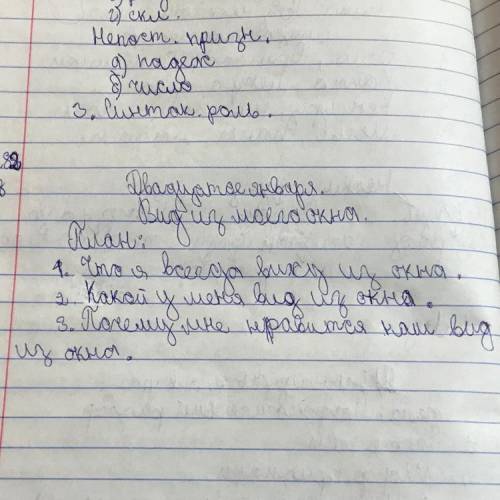 г) скл.
Непост. призн.
а) падеж
б) число
3. Синтак. роль.
Двадцатое января.
Вид из моего окна.
План:
1. Что я всегда вижу из окна.
2. Какой у меня вид из окна.
3. Почему мне нравится наш вид
из окна.